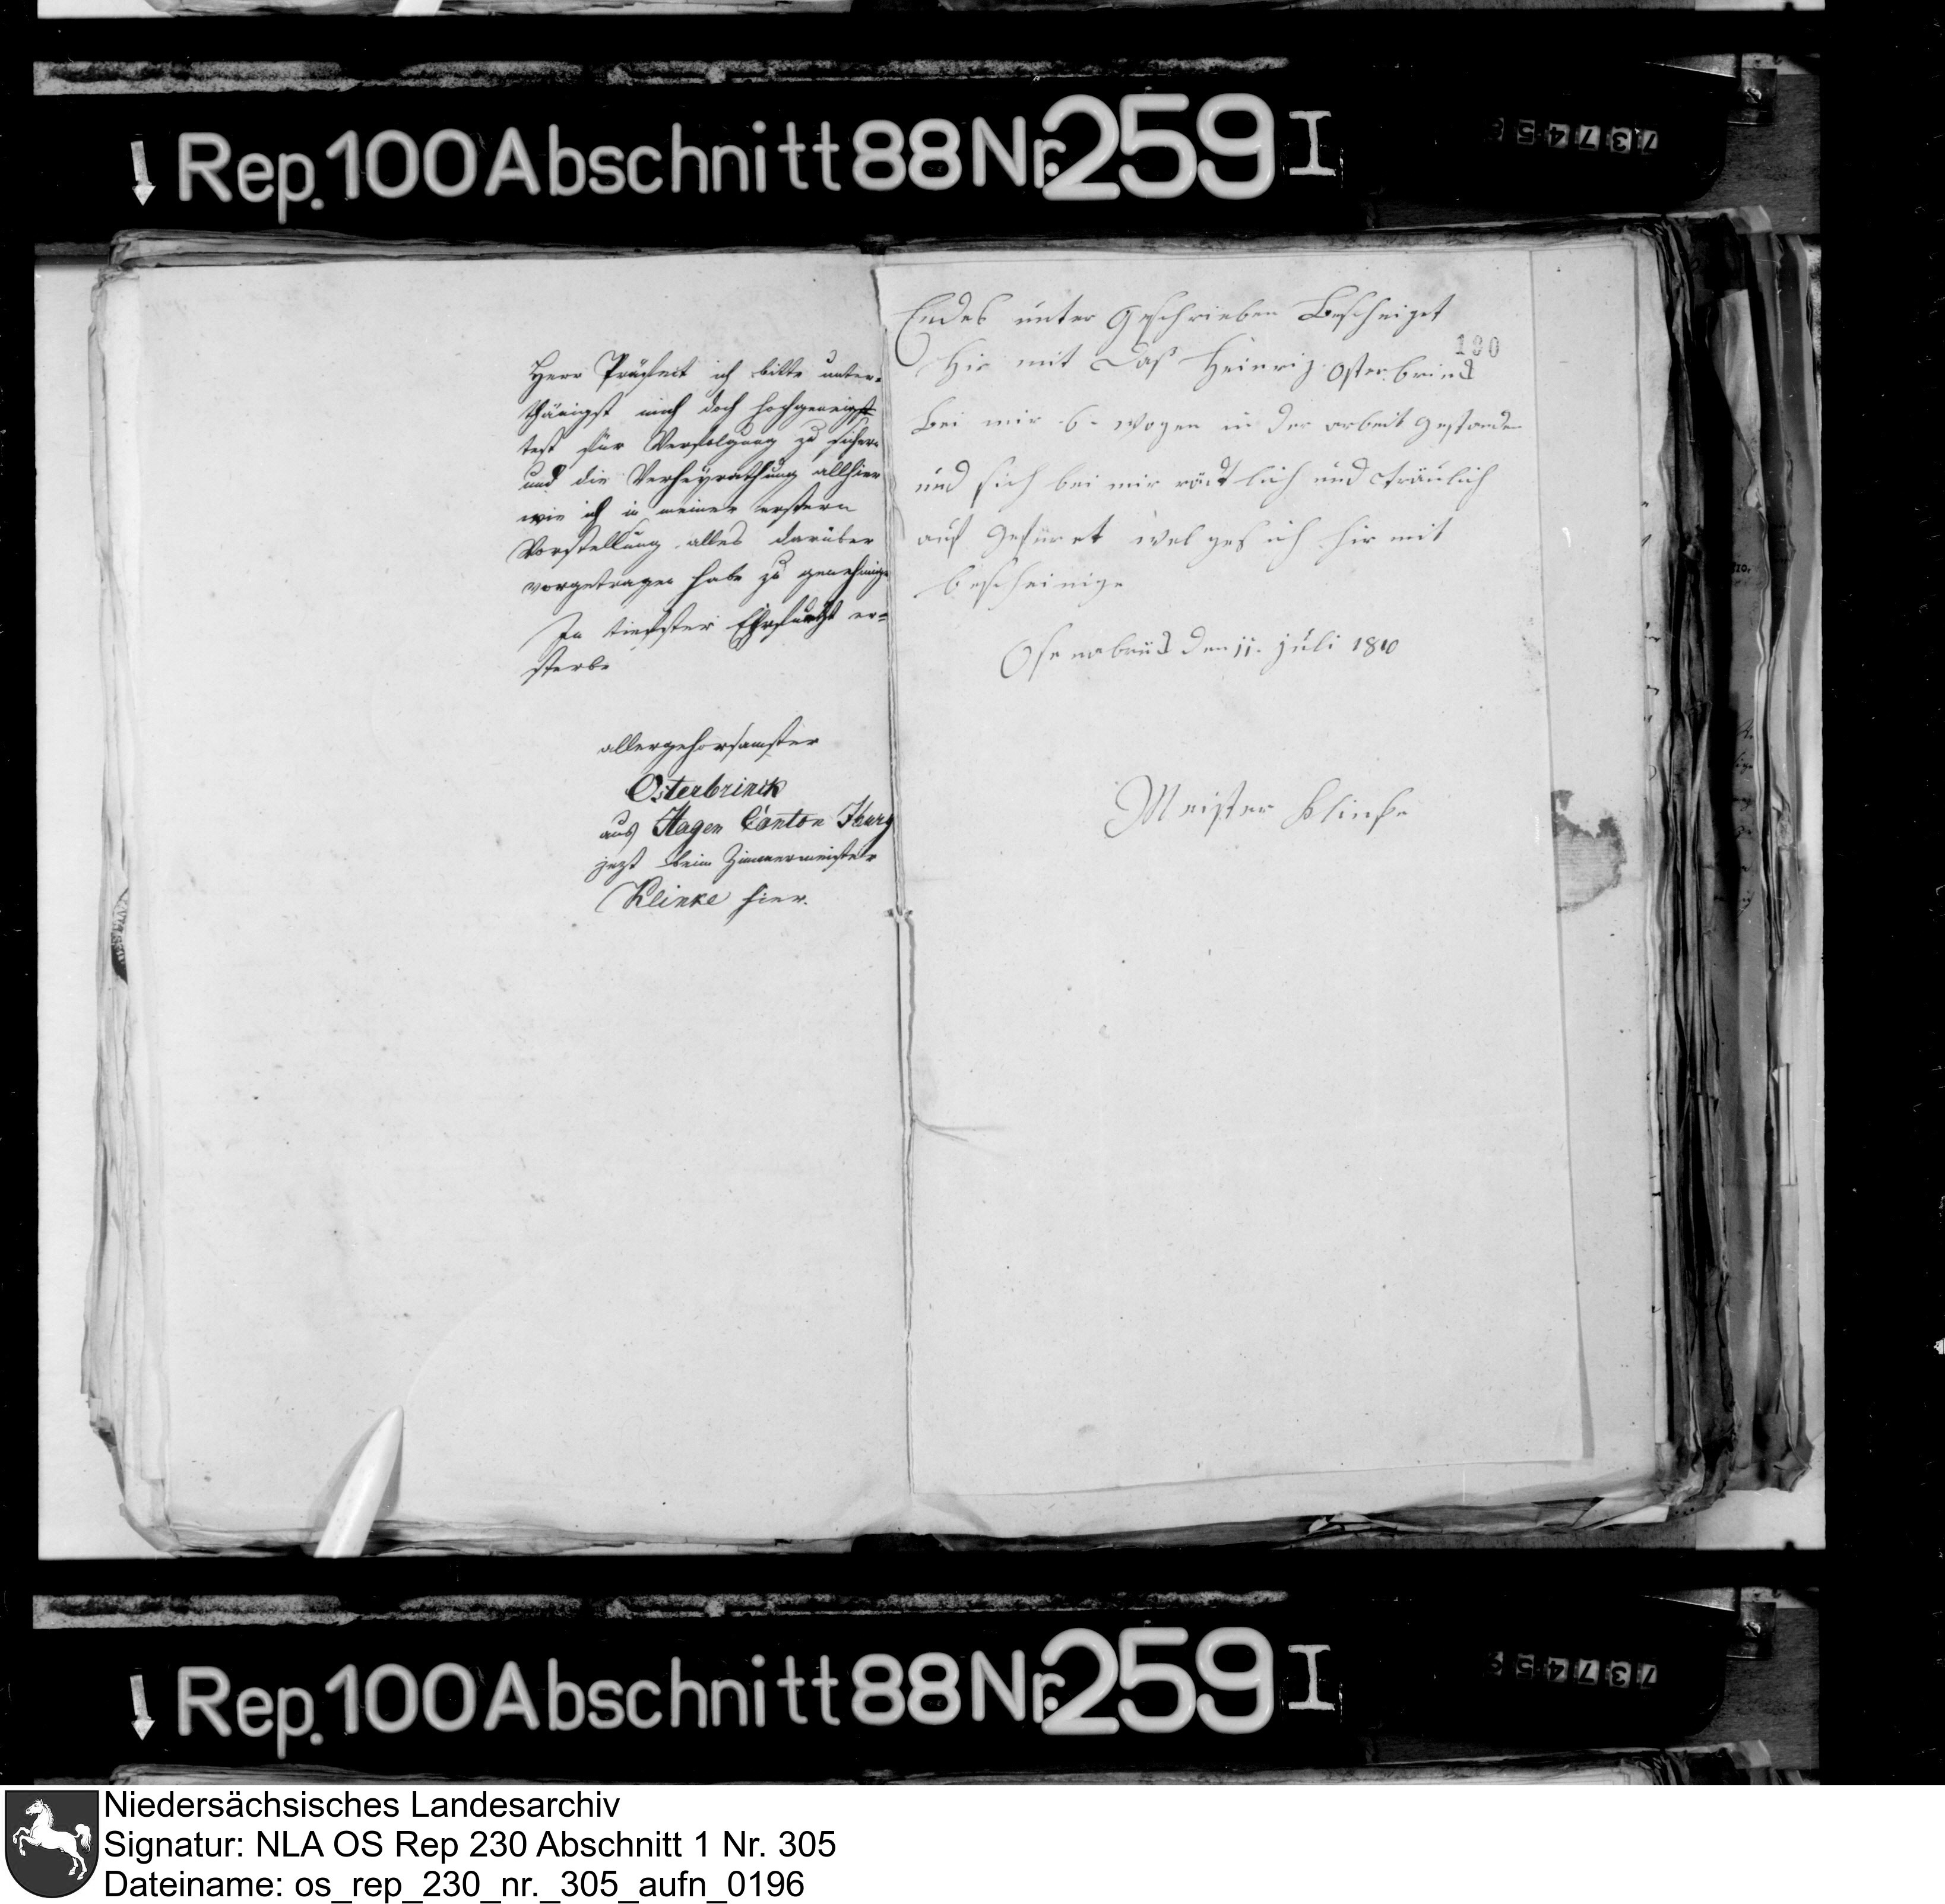 Rep. 100 Abschnitt 88 Nr. 259 I
Herr Präfect ich bitte unter-
thänigst mich doch hochgeneig-
test für Verfolgung zu sichern
und die Verheyrathung allhier
wie ich in meiner erstern
Vorstellung alles darüber
vorgetragen habe zu genehmigen
In tiefster Ehrfurcht er=
sterbe
allergehorsamster
Osterbrinck
aus Hagen Canton Iburg
jezt beim Zimmermeister
Klinke hier.
Endes unter Geschrieben Bescheiget
190
Hir mit Daß Heinrig Osterbrinck
Bei mir 6 wogen in der arbeit gestanden
und sich bei mir und träulich
auf Gefüret welges ich hir mit
bescheinige
Osenabrück den 11. juli 1810
Meister Klinke
Rep. 100 Abschnitt 88 Nr. 259 I
Niedersächsisches Landesarchiv
Signatur: NLA OS Rep 230 Abschnitt 1 Nr. 305
Dateiname: os_rep_230_nr._305_aufn_0196